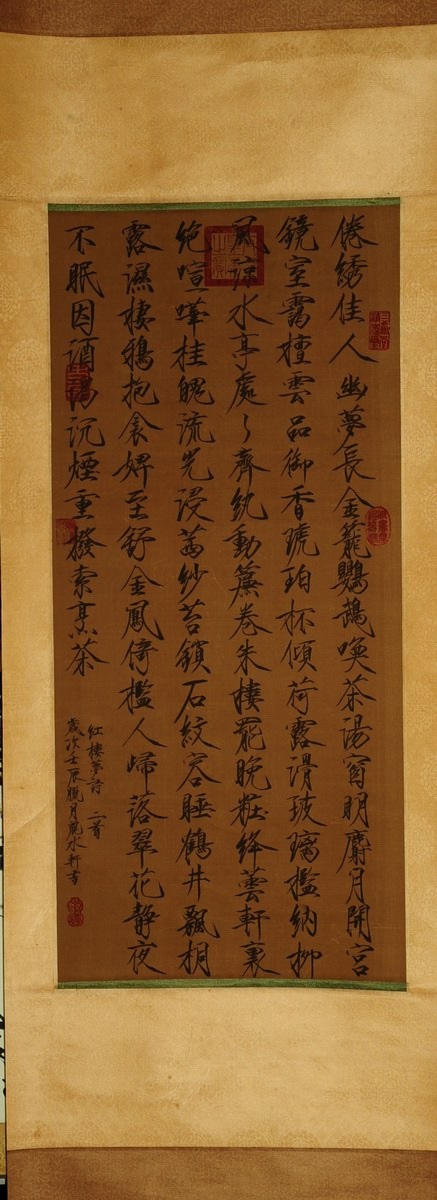 倦繡佳人幽夢長金籠鸚鵡喚茶湯窗明麝月開宮
鏡室靄檀雲品御香琥珀杯傾荷露滑玻璃檻納柳
風涼水亭處々齊紈動簾卷朱樓罷晚粧絳蕓軒裏
絕喧嘩桂魄流光浸茜紗苔鎖石紋容睡鶴井飄桐
露濕棲鴉抱衾婢至舒金鳳倚檻人歸落翠花靜夜
不眠因酒渴沉煙重撥索烹茶
紅樓夢詩二首
歲次壬辰臘月風水軒書